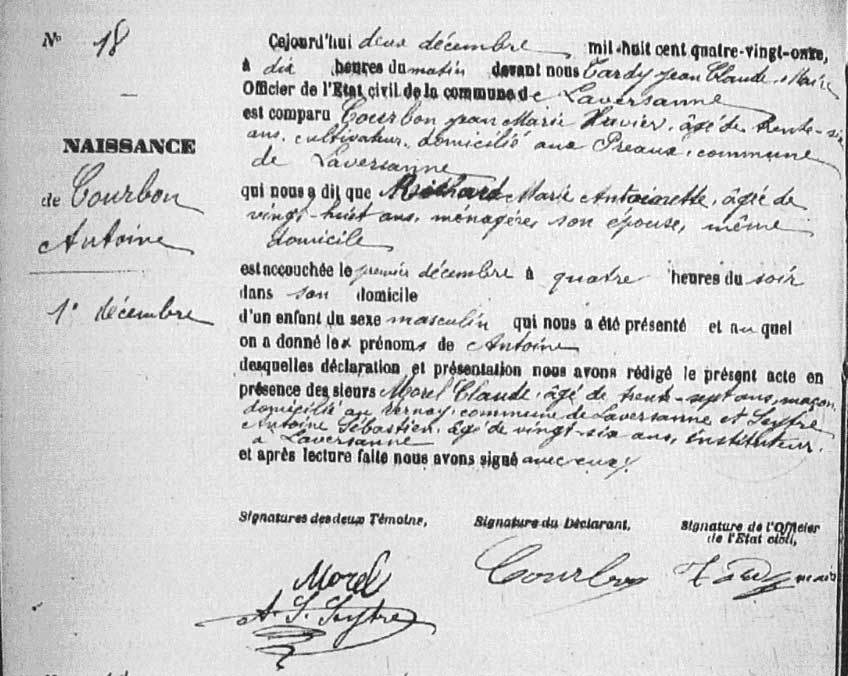 N° 18
NAISSANCE
de Courbon
Antoine
1er décembre
Cejourd'hui deux décembre mil-huit cent quatre-vingt-onze,
à dix heures du matin devant nous Tardy Jean Claude, Maire
Officier de l'Etat civil de la commune de Laversanne
est comparu Courbon Jean Marie Xavier, âgé de trente-six
ans, cultivateur, domicilié aux Préaux, commune
de Laversanne
qui nous a dit que Marie Antoinette, âgée de
vingt-huit ans, ménagère, son épouse, même
domicile
est accouchée le premier décembre à quatre heures du soir
dans son domicile
d'un enfant du sexe masculin qui nous a été présenté et au quel
on a donné le prénom de Antoine
desquelles déclaration et présentation nous avons rédigé le présent acte en
présence des sieurs Morel Claude, âgé de trente-sept ans, maçon,
domicilié au Vernay, commune de Laversanne et Seytre
Antoine Sébastien, âgé de vingt-six ans, instituteur
à Laversanne
et après lecture faite nous avons signé avec eux.
Signatures des deux Témoins,
Signature du Déclarant,
Signature de l'Officier
de l'Etat civil,
Morel
A. S. Seytre
Courbon
Tardy maire